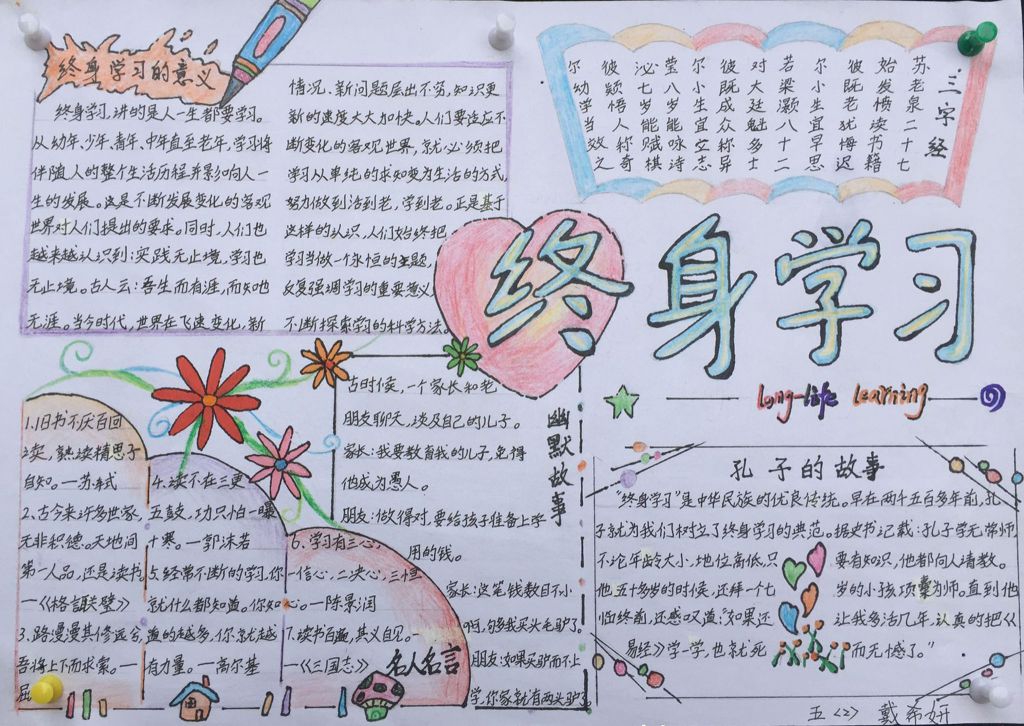 终身学习的意义
终身学习,讲的是人一生都要学习。
从幼年、少年、青年、中年直至老年,学习将
伴随人的整个生活历程并影响人一
生的发展。这是不断发展变化的客观
世界对人们提出的要求。同时,人们也
越来越认识到:实践无止境,学习也
无止境。古人云:吾生而有涯,而知也
无涯。当今时代,世界在飞速变化,新
情况、新问题层出不穷,知识更
新的速度大大加快。人们要适应不
断变化的客观世界,就必须把
学习从单纯的求知变为生活的方式,
努力做到活到老,学到老。正是基于
这样的认识,人们始终把
学习当做一个永恒的主题,
反复强调学习的重要意义,
不断探索学习的科学方法。
三字经
苏老泉二十七
始发愤读书籍
彼既老犹悔迟
尔小生宜早思
若梁灏八十二
对大廷魁多士
彼既成众称异
尔小生宜立志
莹八岁能咏诗
泌七岁能赋棋
彼颖悟人称奇
尔幼学当效之
终身学习
Long-life Learning
1.旧书不厌百回
读,熟读精思子
自知。—苏轼
2.古今来许多世家,
无非积德。天地间
第一人品,还是读书
—《格言联璧》
3.路漫漫其修远兮,
吾将上下而求索。—
屈
4.读不在三更
五鼓,功只怕一曝
十寒。—郭沫若
5.经常不断的学习,你
就什么都知道。你知
道的越多,你就越
有力量。—高尔基
6.学习有三心,
一信心,二决心,三恒
心。—陈景润
7.读书百遍,其义自见。—
—《三国志》
名人名言
幽默故事
古时候,一个家长和老
朋友聊天,谈及自己的儿子。
家长:我要教育我的儿子,免得
他成为愚人。
朋友:做得对,要给孩子准备上学
用的钱。
家长:这笔钱数目不小
啊,够我买头毛驴了。
朋友:如果买驴而不上
学,你家就有两头驴了。
孔子的故事
"终身学习"是中华民族的优良传统。早在两千五百多年前,孔
子就为我们树立了终身学习的典范。据史书记载:孔子学无常师,
不论年龄大小,地位高低,只要有知识,他都向人请教。
他五十多岁的时候,还拜一个七岁的小孩项橐为师。直到他
临终前,还感叹道:"如果还让我多活几年,认真的把《
易经》学一学,也就死而无憾了。"
五〈2〉 戴希妍